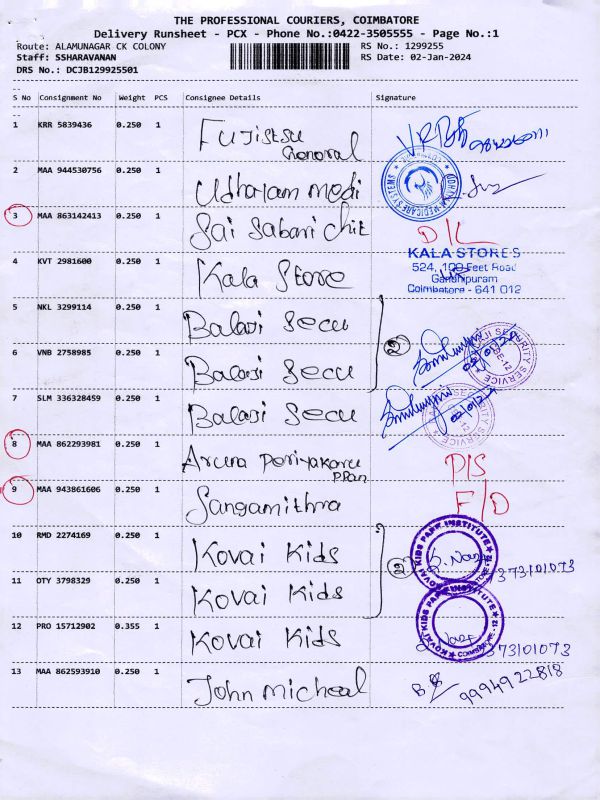 THE PROFESSIONAL COURIERS, COIMBATORE
Delivery Runsheet - PCX - Phone No.:0422-3505555 - Page No.:1
Route: ALAMUNAGAR CK COLONY RS No.: 1299255
Staff: SSHARAVANAN RS Date: 02-Jan-2024
DRS No.: DCJB129925501
S No Consignment No Weight PCS Consignee Details Signature
1 KRR 5839436 0.250 1 Fujistsu
General
2 MAA 944530756 0.250 1 Udhayam medi
3 MAA 863142413 0.250 1 Sai Sabari chit D/L
KALA STORES
524, 100 Feet Road
Gandhipuram
Coimbatore - 641 012
4 KVT 2981600 0.250 1 Kala Store
5 NKL 3299114 0.250 1 Balaji Secu
2
6 VNB 2758985 0.250 1 Balaji Secu
7 SLM 336328459 0.250 1 Balaji Secu
8 MAA 862293981 0.250 1 Aruna Periyakaru
PPan
P/S
9 MAA 943861606 0.250 1 Sangamithra F/D
10 RMD 2274169 0.250 1 Kovai Kids
2 KOVAI KIDS PARK INSTITUTE 373101073
11 OTY 3798329 0.250 1 Kovai Kids
KOVAI KIDS PARK INSTITUTE
COIMBATORE - 12
12 PRO 15712902 0.355 1 Kovai Kids 373101073
13 MAA 862593910 0.250 1 John micheal 9994922818